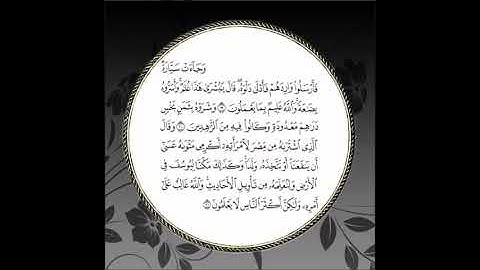 وَجَآءَتْ سَيَّارَةٌ
فَأَرْسَلُوا۟ وَارِدَهُمْ فَأَدْلَىٰ دَلْوَهُۥ ۖ قَالَ يَـٰبُشْرَىٰ هَـٰذَا غُلَـٰمٌ ۚ وَأَسَرُّوهُ
بِضَـٰعَةً ۚ وَٱللَّهُ عَلِيمٌۢ بِمَا يَعْمَلُونَ ١٩ وَشَرَوْهُ بِثَمَنٍۭ بَخْسٍ
دَرَٰهِمَ مَعْدُودَةٍ وَكَانُوا۟ فِيهِ مِنَ ٱلزَّٰهِدِينَ ٢٠ وَقَالَ
ٱلَّذِى ٱشْتَرَىٰهُ مِن مِّصْرَ لِٱمْرَأَتِهِۦٓ أَكْرِمِى مَثْوَىٰهُ عَسَىٰٓ
أَن يَنفَعَنَآ أَوْ نَتَّخِذَهُۥ وَلَدًا ۚ وَكَذَٰلِكَ مَكَّنَّا لِيُوسُفَ فِى
ٱلْأَرْضِ وَلِنُعَلِّمَهُۥ مِن تَأْوِيلِ ٱلْأَحَادِيثِ ۚ وَٱللَّهُ غَالِبٌ عَلَىٰٓ
أَمْرِهِۦ وَلَـٰكِنَّ أَكْثَرَ ٱلنَّاسِ لَا يَعْلَمُونَ ٢١